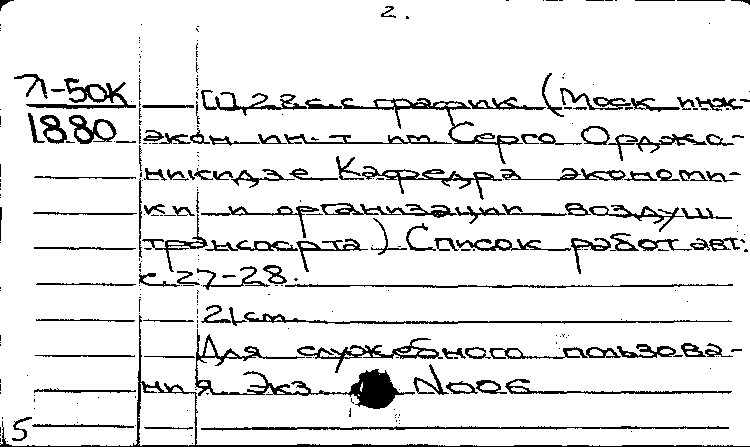 2.
Л-50К [1], 28.с. с график. (Моск. инж-
1880 экон. ин-т им Серго Орджо-
никидзе Кафедра экономи-
ки и организации воздуш
транспорта) Список работ авт:
с. 27-28.
21 см.
Для служебного пользова-
ния Экз. N006
5